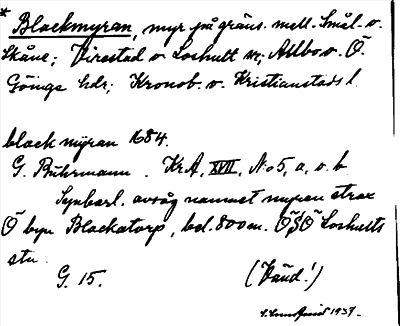 * Blackmyran, myr på gräns. mell. Smål. o.
Skåne; Virestad o. Loshult sn; Allbo o. Ö.
Göinge hdr; Kronob. o. Kristianstads l.
black mÿran 1684.
G. Buhrmann. KrA, XVII, No 5, a, o. b
Synbarl. avsåg namnet myren strax
Ö byn Blackatorp, bel. 800 m. ÖSÖ Loshults
stn.
G. 15. (Vänd!)
1937.